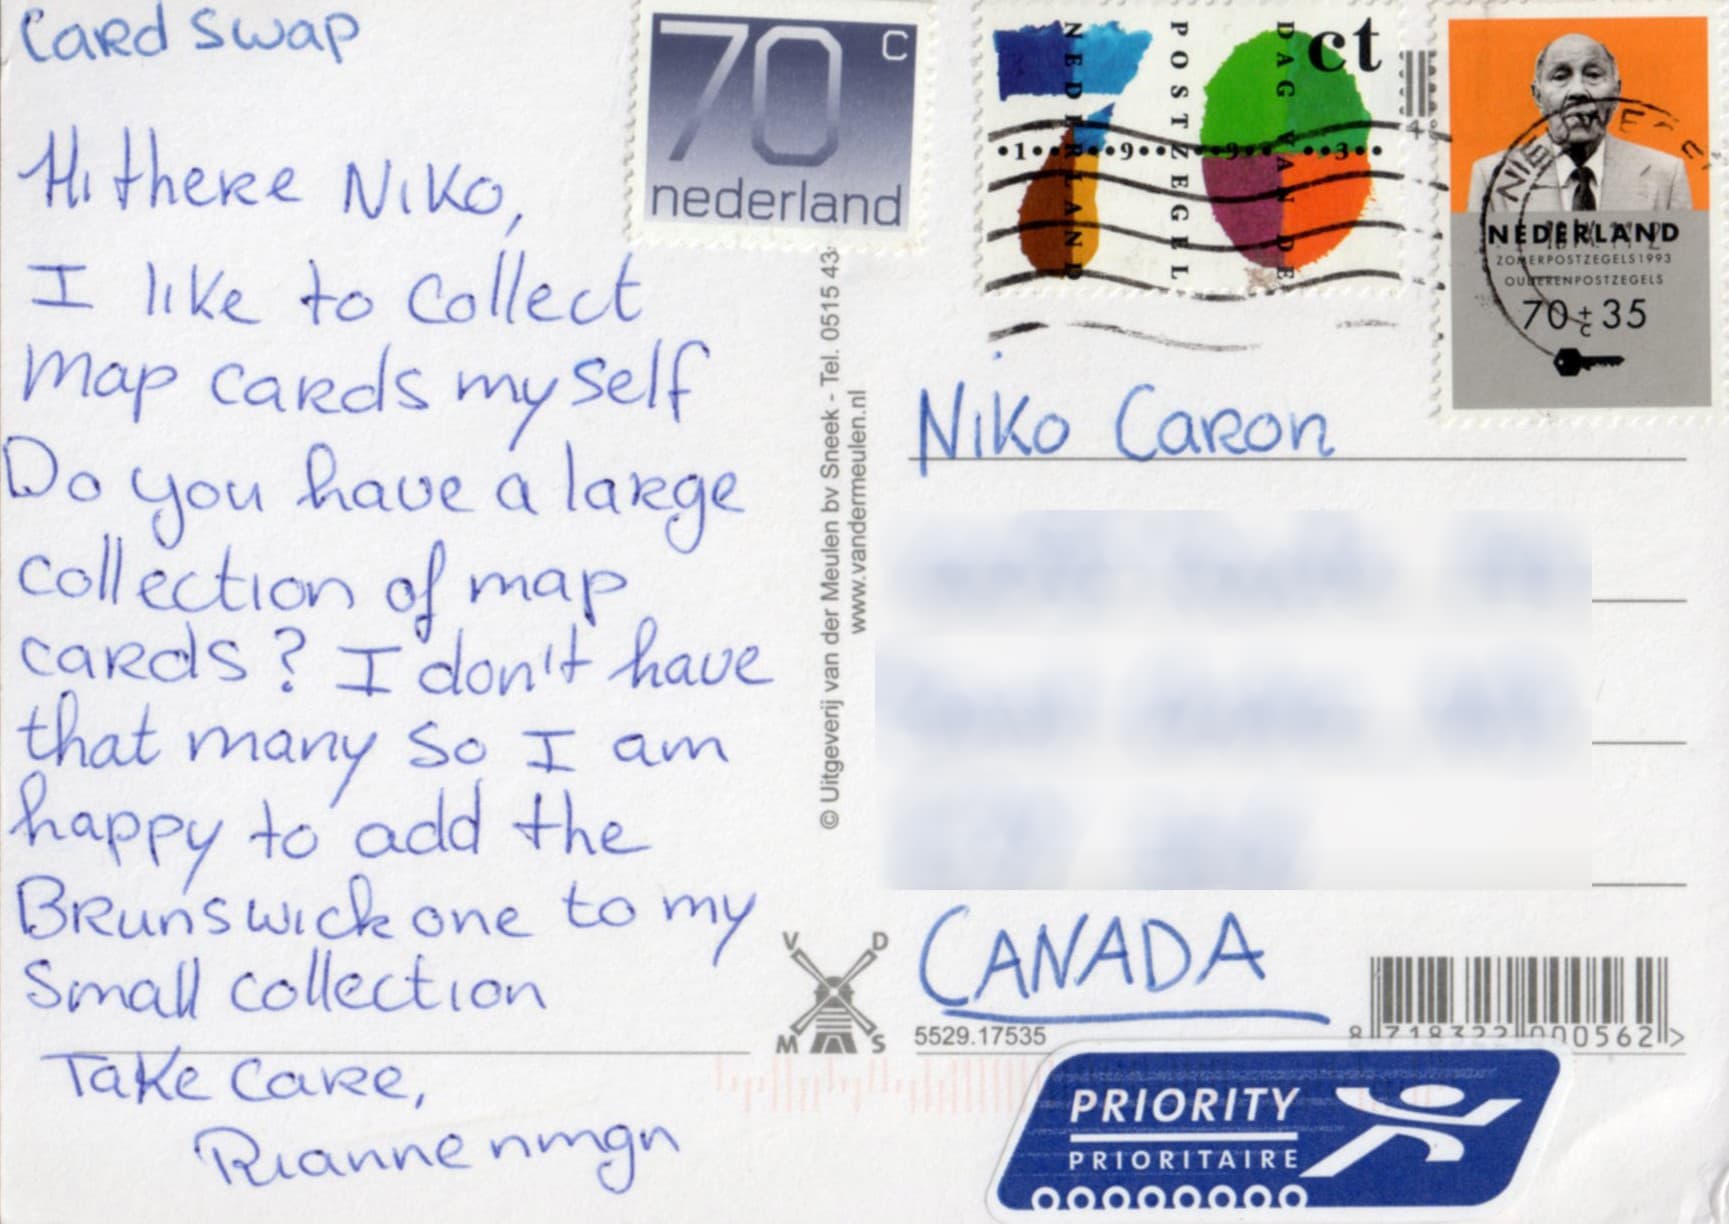 Card swap
Hi there Niko,
I like to collect
map cards myself
Do you have a large
collection of map
cards? I don't have
that many so I am
happy to add the
Brunswick one to my
small collection
Take care,
Rianne nmgn
70 c
nederland
© Uitgeverij van der Meulen bv Sneek - Tel. 0515 43
www.vandermeulen.nl
V D
M S
NEDERLAND
POSTZEGEL
DAG VAN DE
ct
• 1 • • 9 • • 9 • • 3 • •
NEDERLAND
ZOMERPOSTZEGELS 1993
OUDERENPOSTZEGELS
70 + 35
c
Niko Caron
CANADA
5529.17535
8 718322 000562 >
PRIORITY
PRIORITAIRE